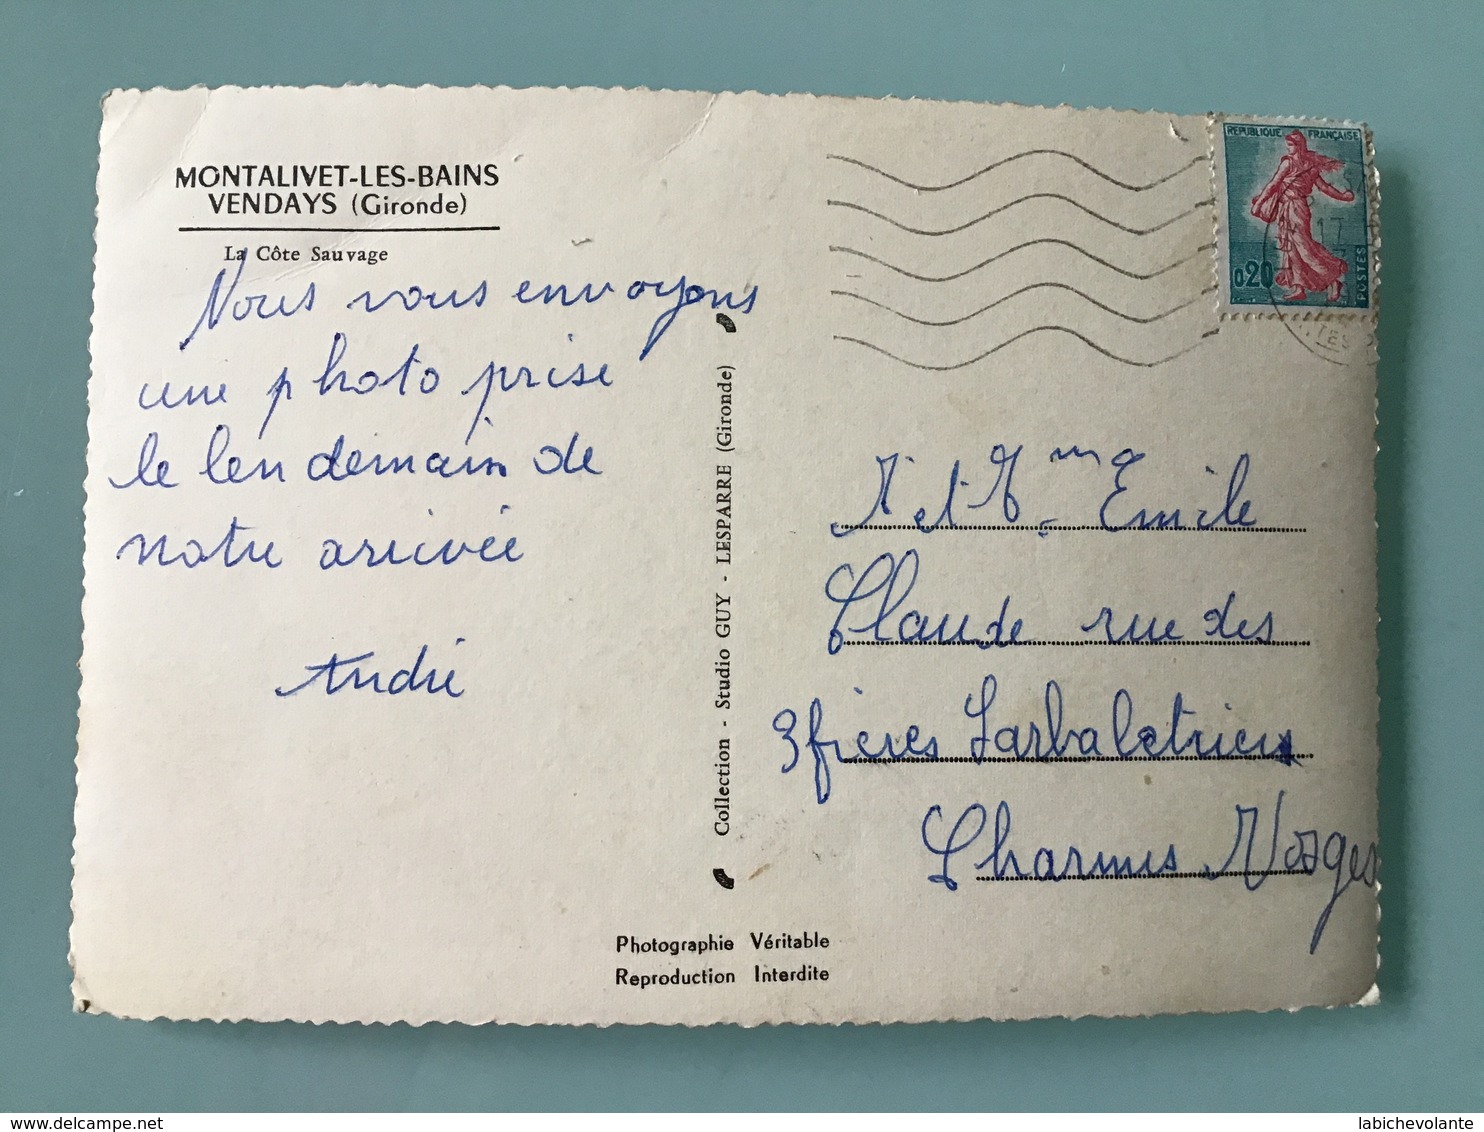 MONTALIVET-LES-BAINS
VENDAYS (Gironde)
La Côte Sauvage
Nous vous envoyons
une photo prise
le lendemain de
notre arrivée
André
Collection - Studio GUY - LESPARRE (Gironde)
REPUBLIQUE FRANÇAISE
0,20
POSTES
17
M et Mme Emile
Claude rue des
3 frères Larbaletrier
Charmes Vosges
Photographie Véritable
Reproduction Interdite
labichevolante